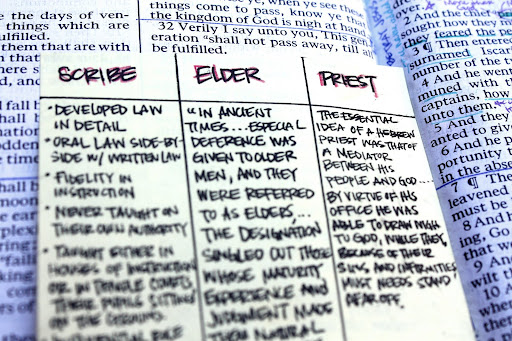 s the days of ven-
things which are
ulfilled.
them that are with
things come to pass, know ye that
the kingdom of God is nigh at hand
32 Verily I say unto you, This gen-
eration shall not pass away, till all
be fulfilled.
over.
2 And the chief
sought how they
they feared the pe
3 ¶ Then entered
surnamed Iscar
number of the t
4 And he went
muned with th
captains, how
unto them.
5 And they
anted to give
6 And he p
portunity
in the abse
7 ¶ Then
leavened
must be
8 And
ing, Go
9 And
wilt th
10 A
SCRIBE
• DEVELOPED LAW
IN DETAIL
• ORAL LAW SIDE-BY-
SIDE W/ WRITTEN LAW
• FIDELITY IN
INSTRUCTION
• NEVER TAUGHT ON
THEIR OWN AUTHORITY
• TAUGHT EITHER IN
HOUSES OF INSTRUCTION
OR IN TEMPLE COURTS,
THEIR PUPILS SITTING
ON THE GROUND
ELDER
"IN ANCIENT
TIMES... ESPECIAL
DEFERENCE WAS
GIVEN TO OLDER
MEN, AND THEY
WERE REFERRED
TO AS ELDERS,...
THE DESIGNATION
SINGLED OUT THOSE
WHOSE MATURITY
EXPERIENCE AND
JUDGMENT MADE
THEM NATURAL
PRIEST
THE ESSENTIAL
IDEA OF A HEBREW
PRIEST WAS THAT OF
A MEDIATOR
BETWEEN HIS
PEOPLE AND GOD....
BY VIRTUE OF HIS
OFFICE HE WAS
ABLE TO DRAW NIGH
TO GOD, WHILE THEY,
BECAUSE OF THEIR
SINS AND INFIRMITIES
MUST NEEDS STAND
AFAR OFF.